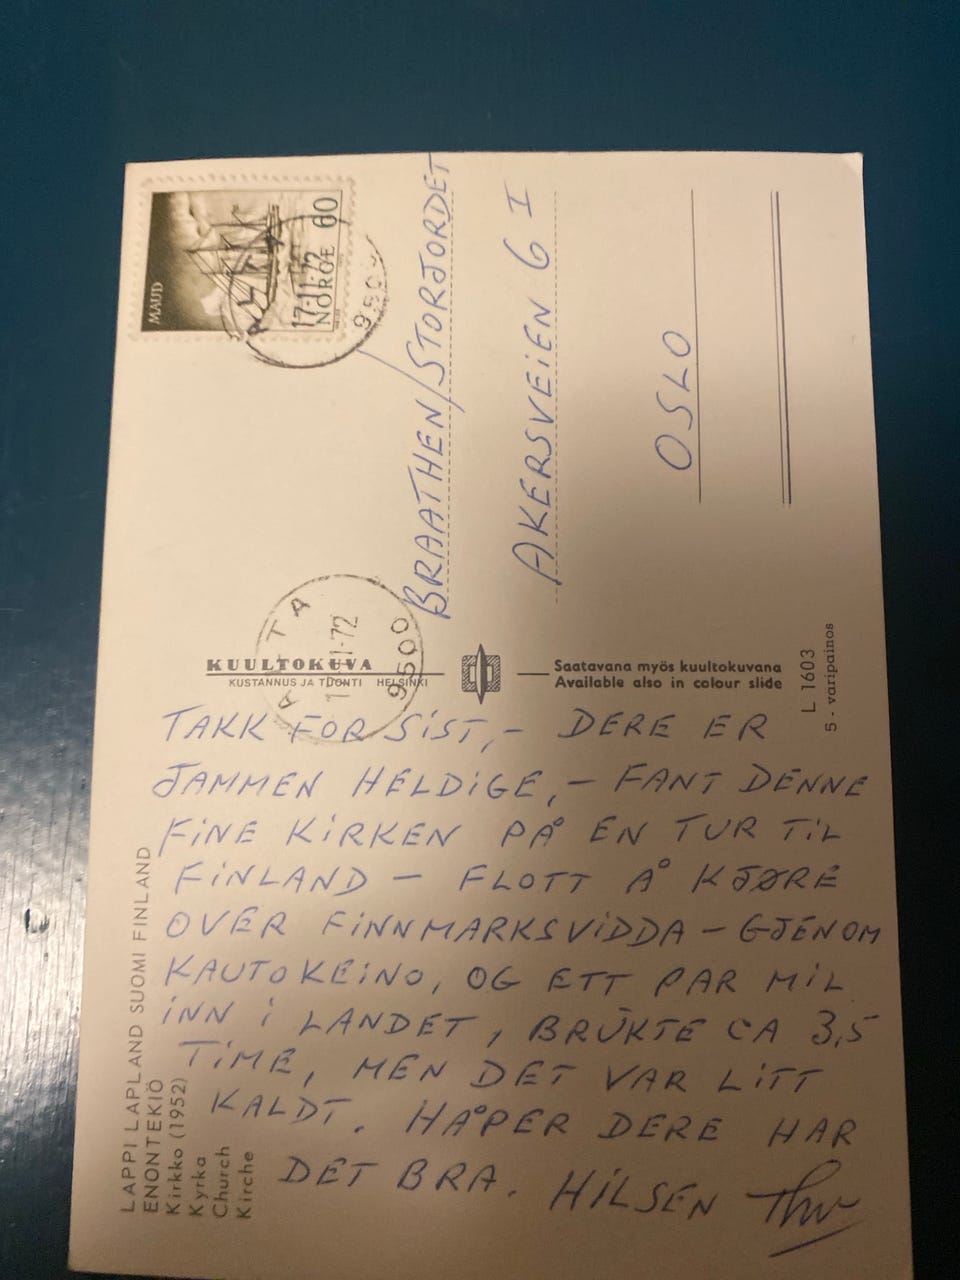 MAUD
NORGE 60
17.11.72
9500
BRAATHEN/STORJORDET
AKERSVEIEN 6 I
OSLO
ALTA
1-72
9500
KUULTOKUVA
KUSTANNUS JA TUONTI HELSINKI
Saatavana myös kuultokuvana
Available also in colour slide
L 1603
5 - varipainos
TAKK FOR SIST,- DERE ER
JAMMEN HELDIGE,- FANT DENNE
FINE KIRKEN PÅ EN TUR TIL
FINLAND - FLOTT Å KJØRE
OVER FINNMARKSVIDDA - GJENOM
KAUTOKEINO, OG ETT PAR MIL
INN I LANDET, BRUKTE CA 3,5
TIME, MEN DET VAR LITT
KALDT. HÅPER DERE HAR
DET BRA. HILSEN
LAPPI LAPLAND SUOMI FINLAND
ENONTEKIÖ
Kirkko (1952)
Kyrka
Church
Kirche